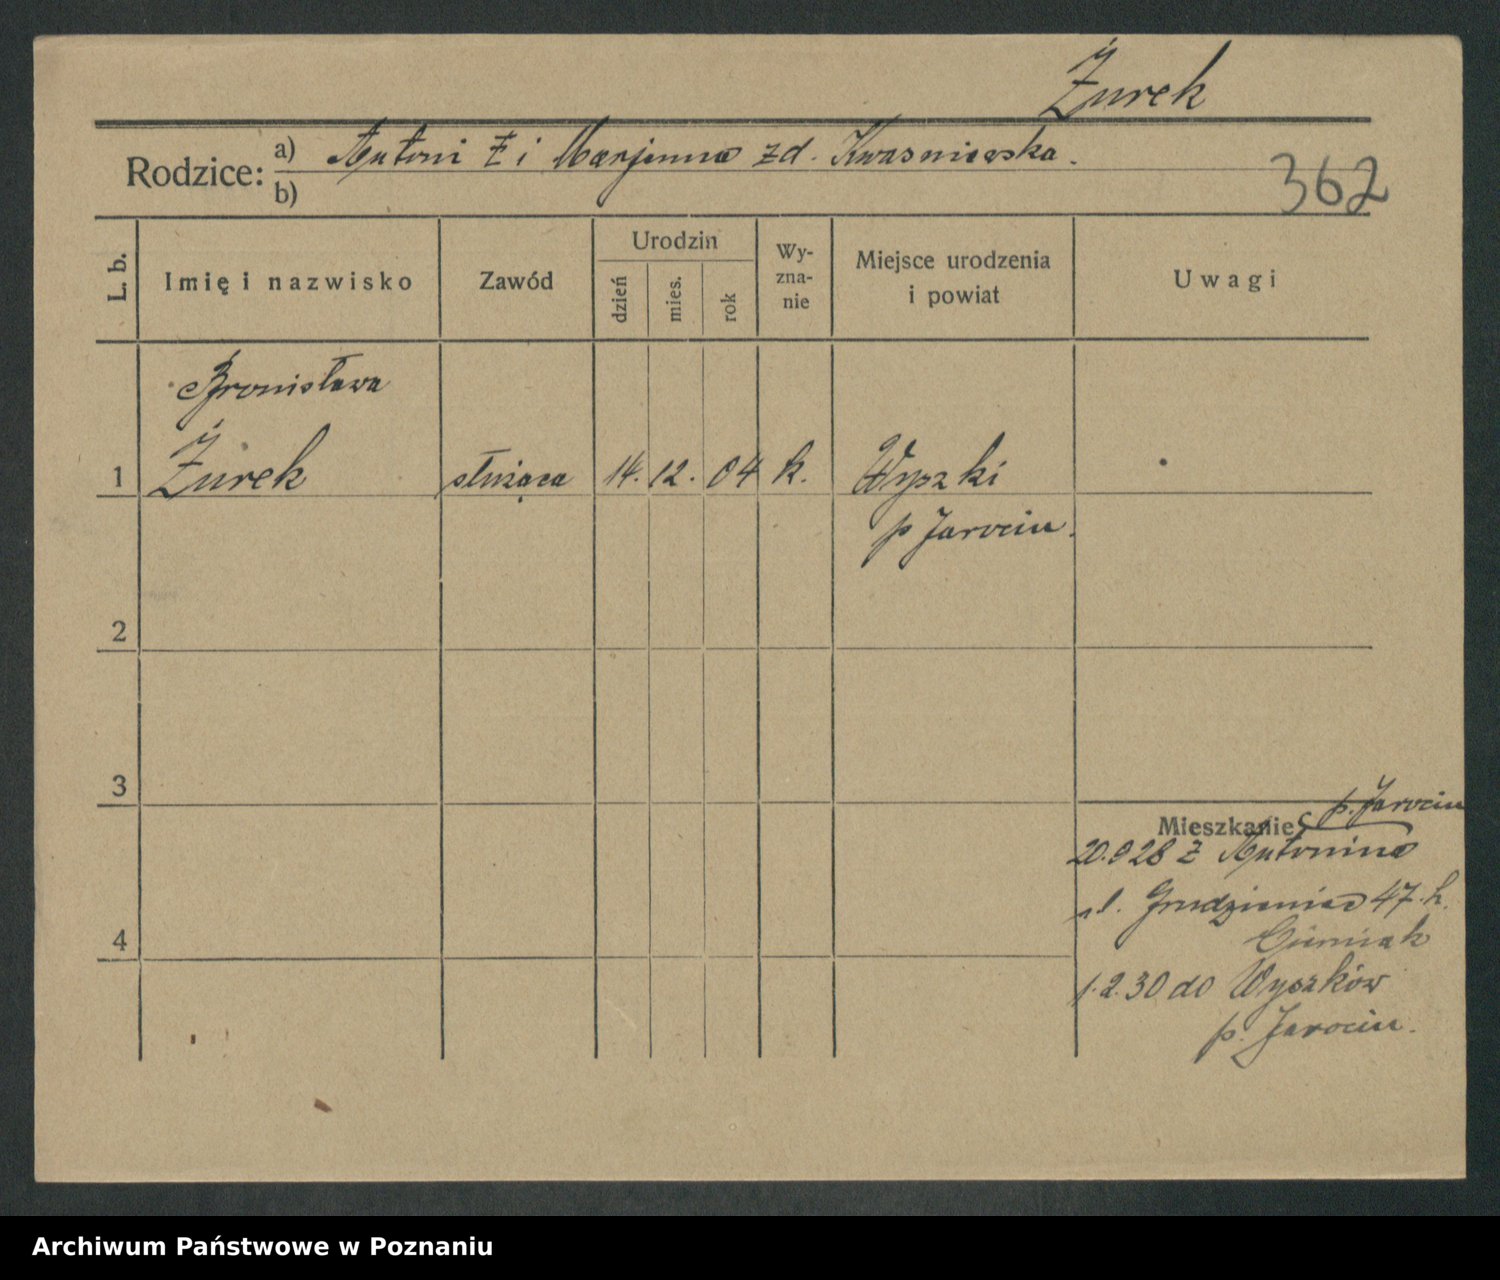 Żurek
Rodzice: a) Antoni Ż i Marjanna zd. Kwasniewska.
b)
362
L. b.
Imię i nazwisko
Zawód
Urodzin
dzień
mies.
rok
Wy-
zna-
nie
Miejsce urodzenia
i powiat
Uwagi
Bronisława
1 Żurek służąca 14. 12. 04 k. Wyszki
p Jarocin.
2
3
p. Jarocin
Mieszkanie
20.9 28 z Antonina
ul. Grudzieniec 47.
4
1.2.30 do Wyszków
p. Jarocin.
Archiwum Państwowe w Poznaniu